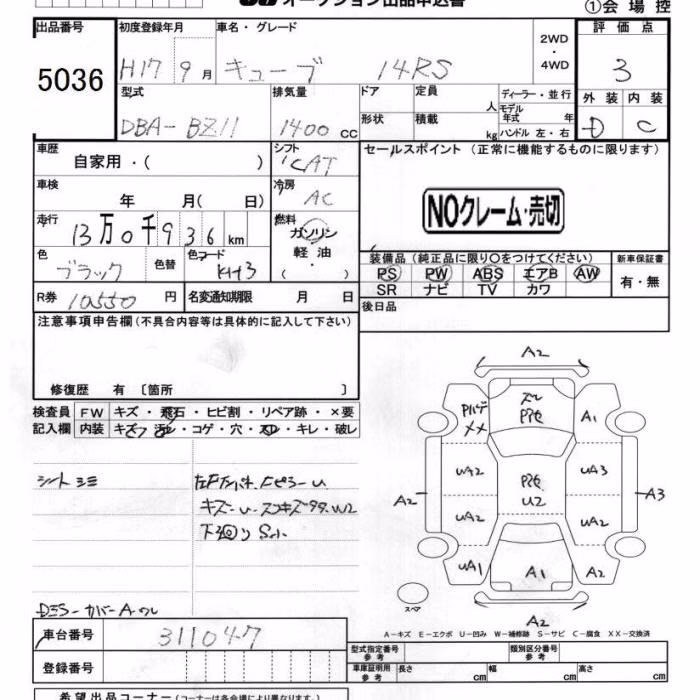 オークション出品申込書
①会場控
出品番号 初度登録年月 車名・グレード 2WD・4WD 評価点
5036 H17 9月 キューブ 14RS 3
型式 排気量 ドア 定員 人 ディーラー・並行 外装 内装
DBA-BZ11 1400 CC 形状 積載 kg モデル年式 年 ハンドル 左・右 D C
車歴 自家用・( ) シフト CAT セールスポイント (正常に機能するものに限ります)
車検 年 月( 日) 冷房 AC
NOクレーム・売切
走行 13万0千936km 燃料 ガソリン
軽油
・( )
色 ブラック 色替 色コード KH3
装備品 (純正品に限り〇をつけてください) 新車保証書
PS PW ABS エアB AW 有・無
SR ナビ TV カワ
R券 10550 円 名変通知期限 月 日
後日品
注意事項申告欄 (不具合内容等は具体的に記入して下さい)
修復歴 有 〔箇所 〕
検査員 FW キズ・飛石・ヒビ割・リペア跡・×要
記入欄 内装 キズ・汚れ・コゲ・穴・スレ・キレ・破レ
A2
XX PPC A1
シート シミ
キズ-U
下回り S小
UA2 UA3
PPC
U2
A2 A3
UA2 UA2
UA1 A1 A2
スペア
A2
A-キズ E-エクボ U-凹み W-補修跡 S-サビ C-腐食 XX-交換済
車台番号 311047
型式指定番号 参考 類別区分番号 参考
登録番号
車庫証明用 参考 長さ cm 幅 cm 高さ cm
希望出品コーナー (コーナーは各会場により異なります。)